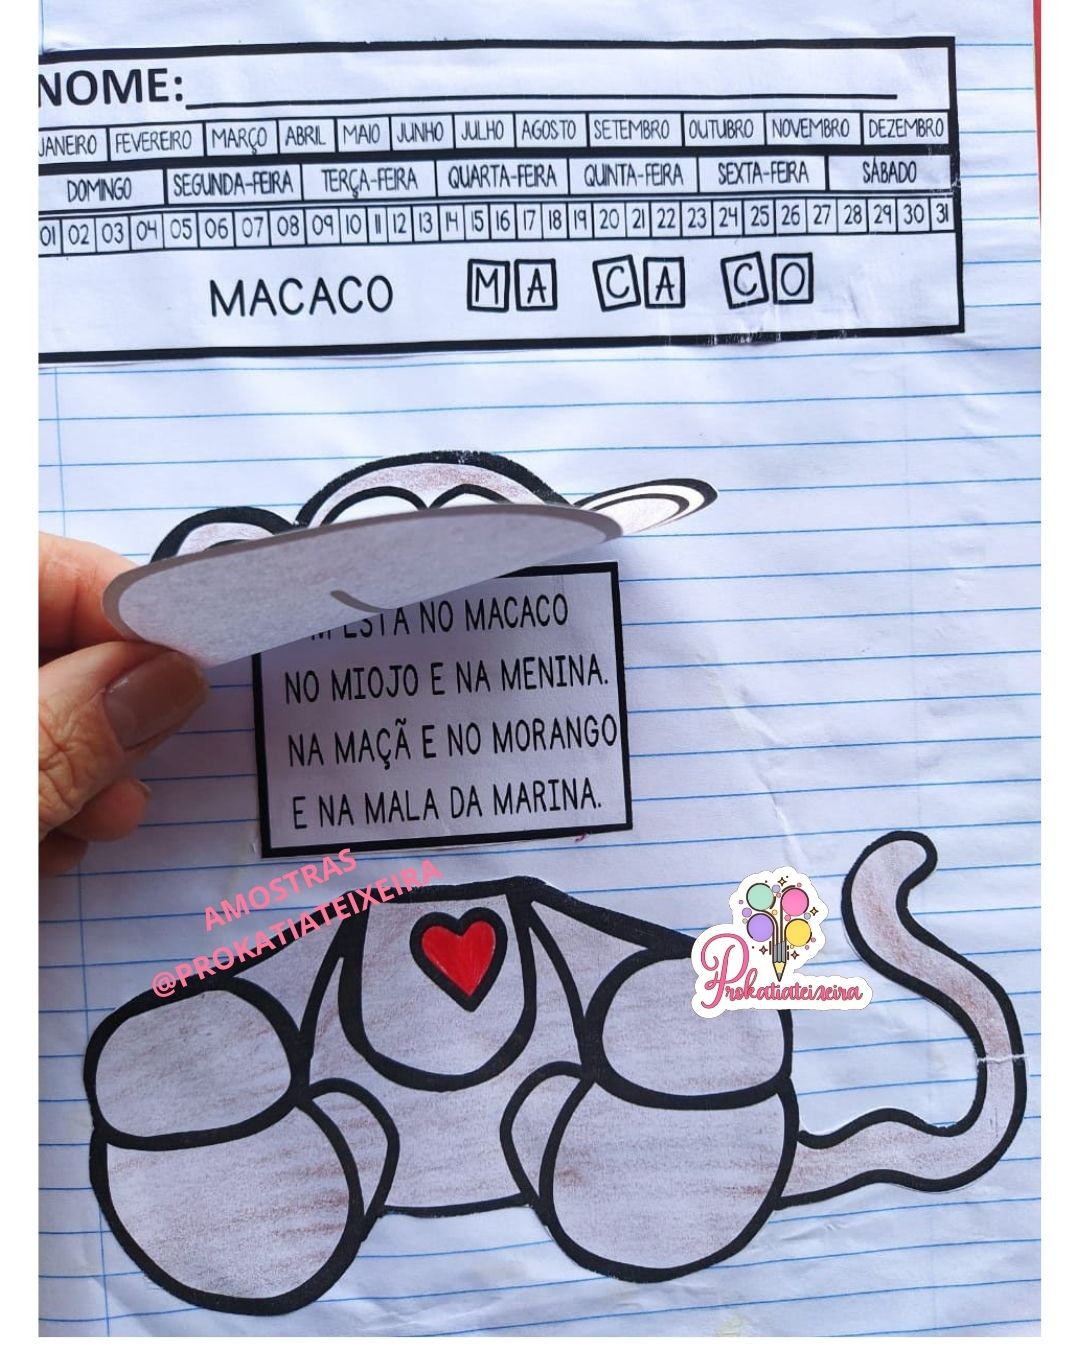 NOME:
JANEIRO FEVEREIRO MARÇO ABRIL MAIO JUNHO JULHO AGOSTO SETEMBRO OUTUBRO NOVEMBRO DEZEMBRO
DOMINGO SEGUNDA-FEIRA TERÇA-FEIRA QUARTA-FEIRA QUINTA-FEIRA SEXTA-FEIRA SÁBADO
01 02 03 04 05 06 07 08 09 10 11 12 13 14 15 16 17 18 19 20 21 22 23 24 25 26 27 28 29 30 31
MACACO MA CA CO
M ESTÁ NO MACACO
NO MIOJO E NA MENINA.
NA MAÇÃ E NO MORANGO
E NA MALA DA MARINA.
AMOSTRAS
@PROKATIATEIXEIRA
Prokatiateixeira